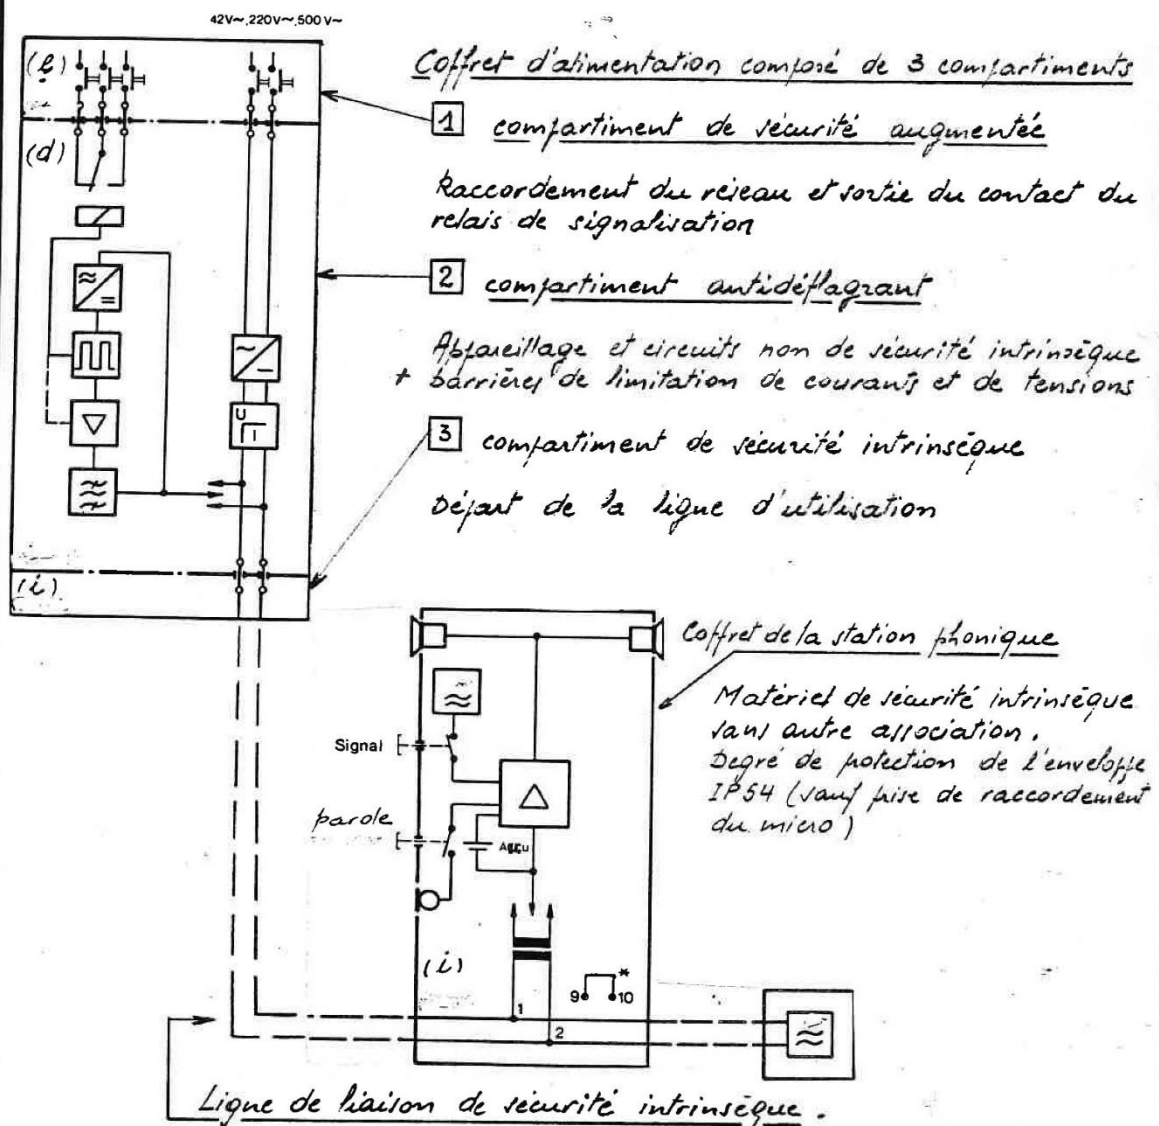 42V~,220V~,500V~
(e)
Coffret d'alimentation composé de 3 compartiments
1 compartiment de sécurité augmentée
(d)
Raccordement du réseau et sortie du contact du
relais de signalisation
2 compartiment antidéflagrant
Appareillage et circuits non de sécurité intrinsèque
+ barrières de limitation de courants et de tensions
U
I
3 compartiment de sécurité intrinsèque
Départ de la ligne d'utilisation
(i)
Coffret de la station phonique
Matériel de sécurité intrinsèque
sans autre association.
Degré de potection de l'enveloppe
IP54 (sauf prise de raccordement
du micro)
Signal
parole
Accu
(i)
*
9 10
1
2
Ligne de liaison de sécurité intrinsèque.